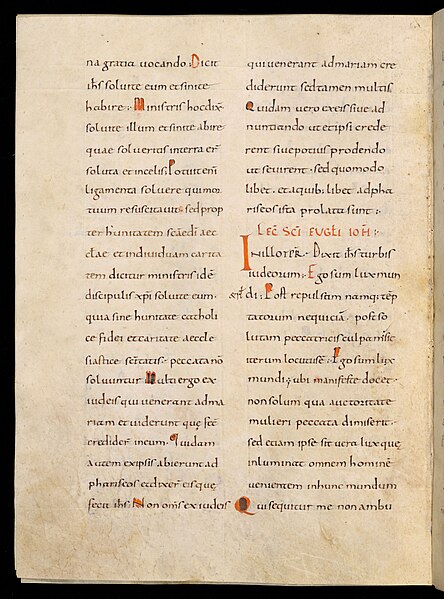 na gratia uocando· Dicit
ihs soluite eum etsinite
habire· Ministris hocdix̄
soluite illum etsinite abire
quae solueritis interra er̄
soluta et incelis· Potuit enī
ligamenta soluere qui mor
tuum resuscitauit· sed prop
ter hunitatem scae dī aec
clae et indiuiduam carita
tem dicitur ministris idē
discipulis xp̄i soluite eum·
quia sine hunitate catholi
ce fidei et caritate aeccle
siastice sc̄etatis· peccata nō
soluuntur Multi ergo ex
iudeis qui uenerant ad ma
riam et uiderunt quę fec̄
credider̄ in eum· Quidam
autem ex ipsis abierunt ad
phariseos et dixer̄ eis quę
fecit ih̄s· Non om̄s ex iudeis
qui uenerant ad mariam cre
diderunt sed tamen multis
Quidam uero ex eis siue ad
nuntiando ut et ipsi crede
rent siue potius prodendo
ut seuirent· sed quomodo
libet· et a quib; libet ad pha
riseos ista prolata sunt:
LEC̄ SCĪ EUGL̄I IOH̄:
IN ILLO TEP̄R· Dixit ih̄s turbis
iudeorum: Ego sum lux mun
di: Post repulsam namq; tēp
tatorum nequiciā· post so
lutam peccatricis culpam
iterum locutus ē· Ego sum lux
mundi; ubi manifeste docet·
non solum qua auctoritate
mulieri peccata dimiserit·
sed etiam ipse sit uera lux quę
inluminat omnem hominē
uenientem in hunc mundum
Qui sequitur me non ambu